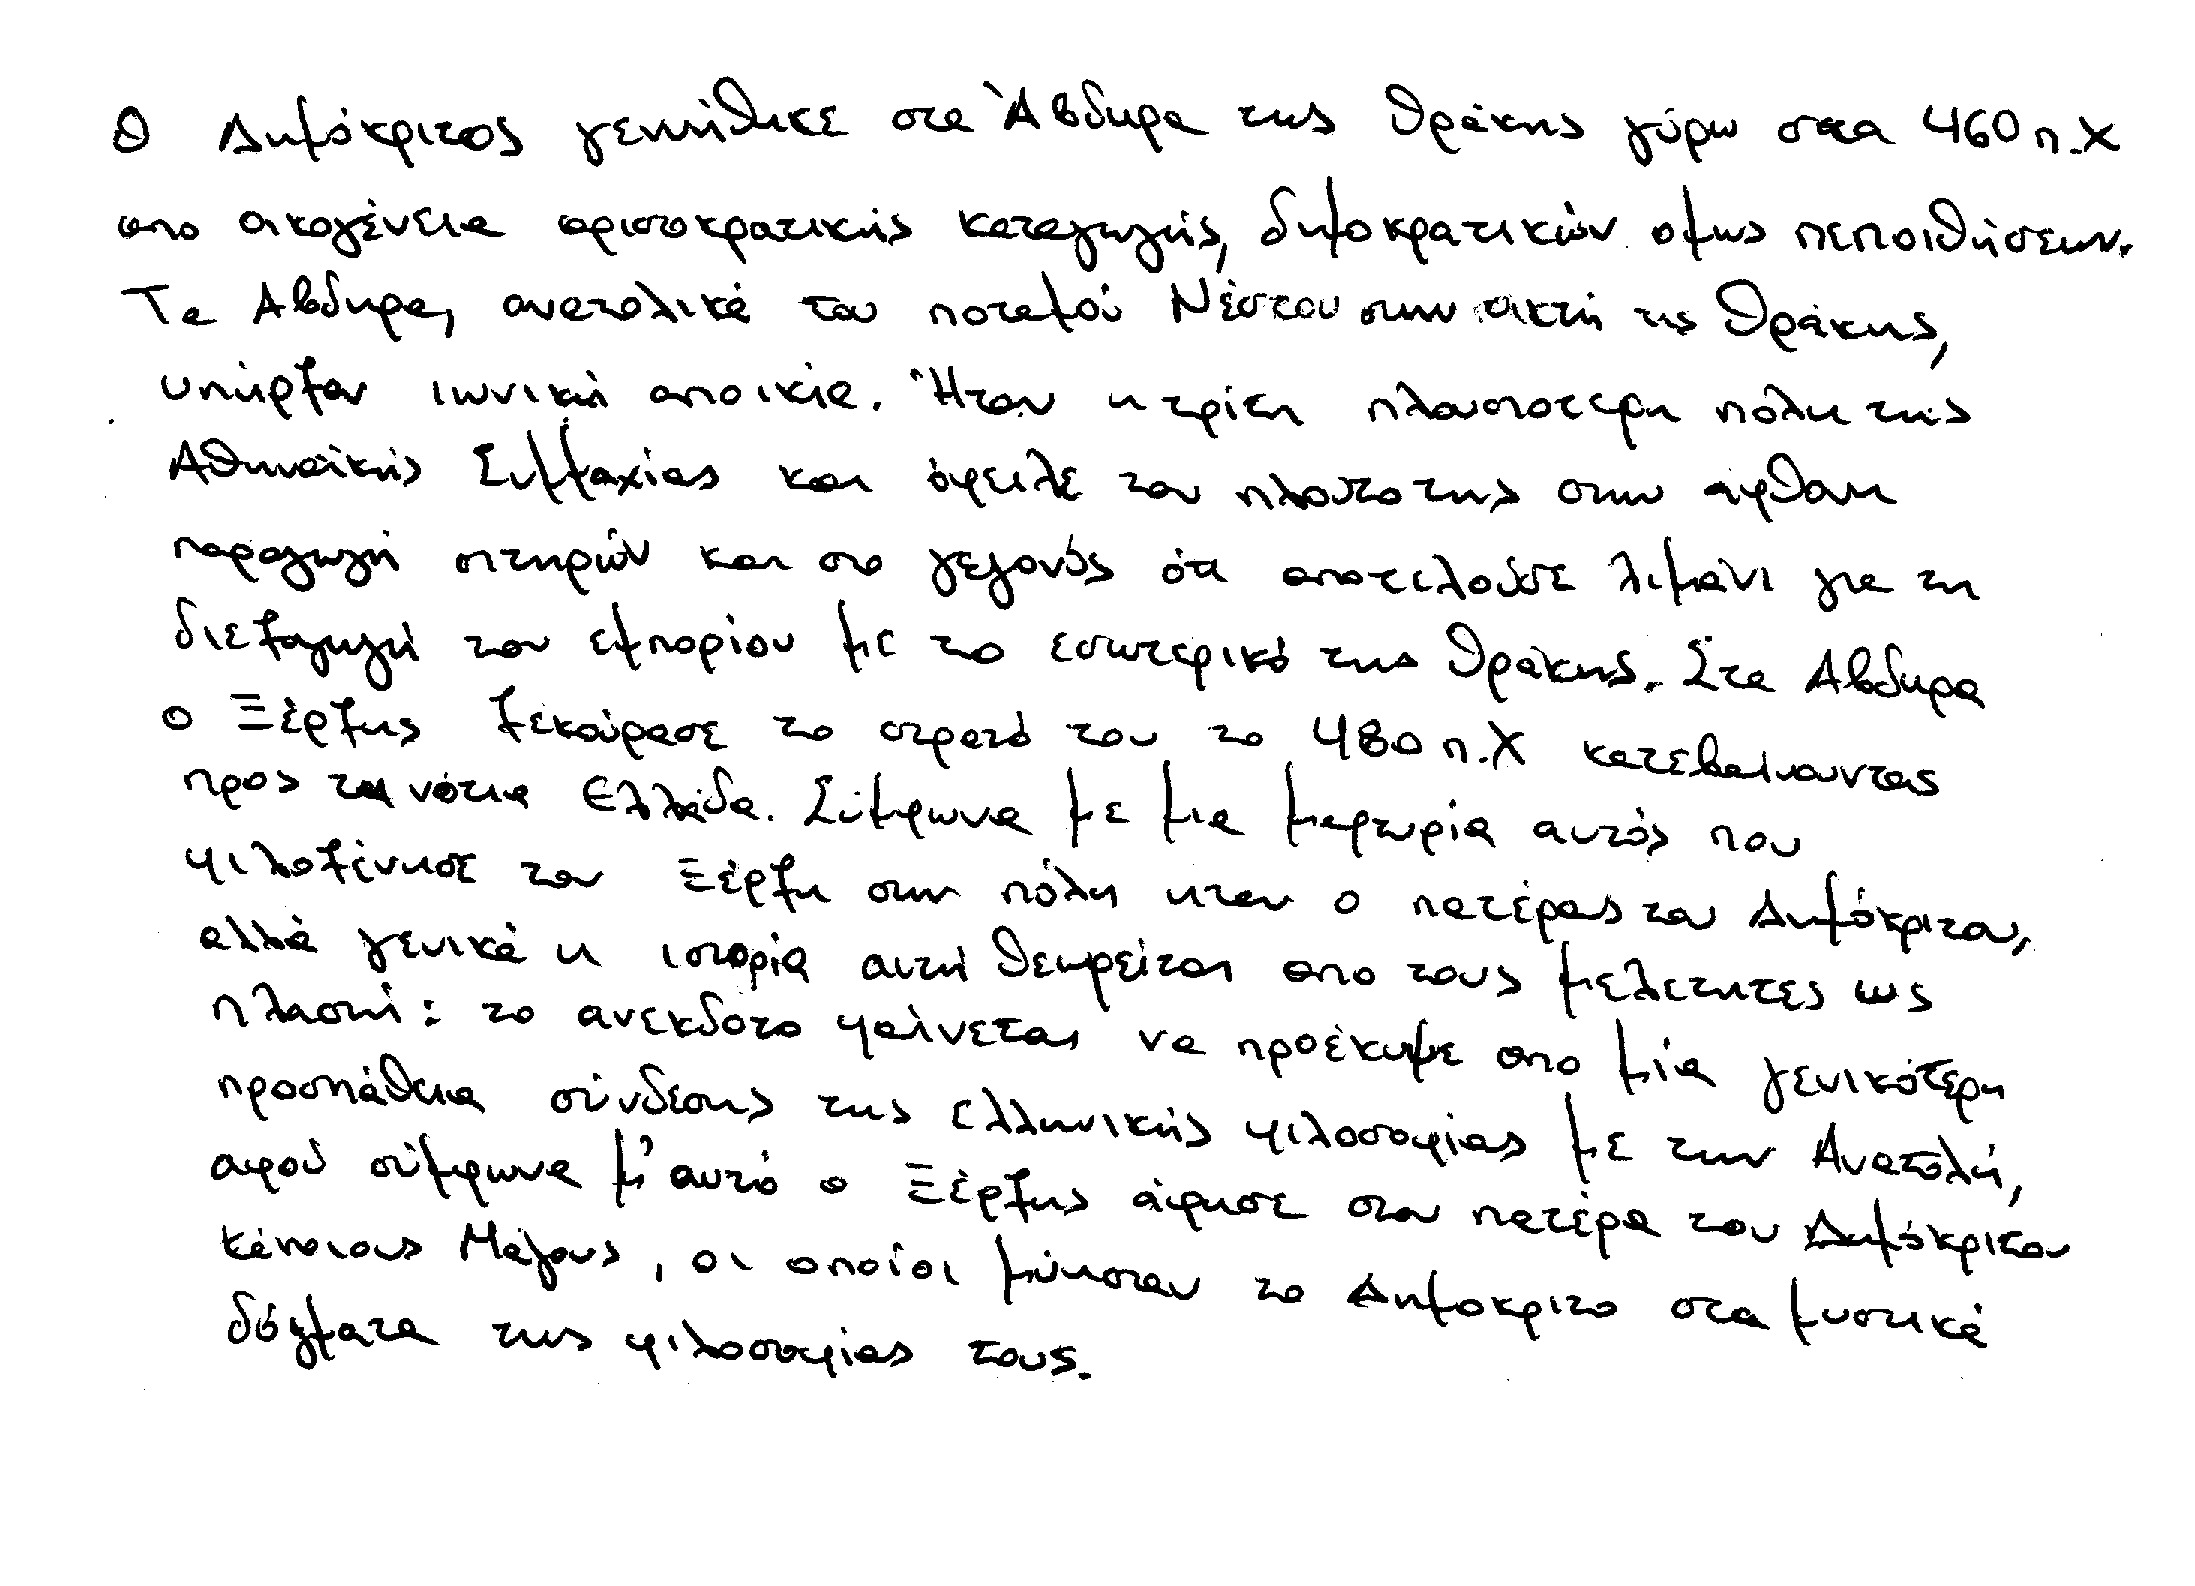 Ο Δημόκριτος γεννήθηκε στα Άβδηρα της Θράκης γύρω στα 460 π.Χ
απο οικογένεια αριστοκρατικής καταγωγής, δημοκρατικών ομως πεποιθήσεων.
Τα Αβδηρα, ανατολικά του ποταμού Νέστου στην ακτή της Θράκης,
υπήρξαν ιωνική αποικία. Ήταν η τρίτη πλουσιοτερη πόλη της
Αθηναϊκής Συμμαχίας και όφειλε τον πλούτο της στην αφθονη
παραγωγή σιτηρών και στο γεγονός ότι αποτελούσε λιμάνι για τη
διεξαγωγή του εμπορίου με το εσωτερικό της Θράκης. Στα Αβδηρα
ο Ξέρξης ξεκούρασε το στρατό του το 480 π.Χ κατεβαίνοντας
προς τη νότια Ελλάδα. Σύμφωνα με μια μαρτυρία αυτός που
φιλοξένησε τον Ξέρξη στην πόλη ηταν ο πατέρας του Δημόκριτου,
αλλά γενικά η ιστορία αυτή θεωρείται απο τους μελετητες ως
πλαστή: το ανεκδοτο φαίνεται να προέκυψε απο μία γενικότερη
προσπάθεια σύνδεσης της ελληνικής φιλοσοφίας με την Ανατολή,
αφού σύμφωνα μ' αυτό ο Ξέρξης άφησε στον πατέρα του Δημόκριτου
κάποιους Μαγους, οι οποίοι μύησαν το Δημοκριτο στα μυστικά
δόγματα της φιλοσοφίας τους.